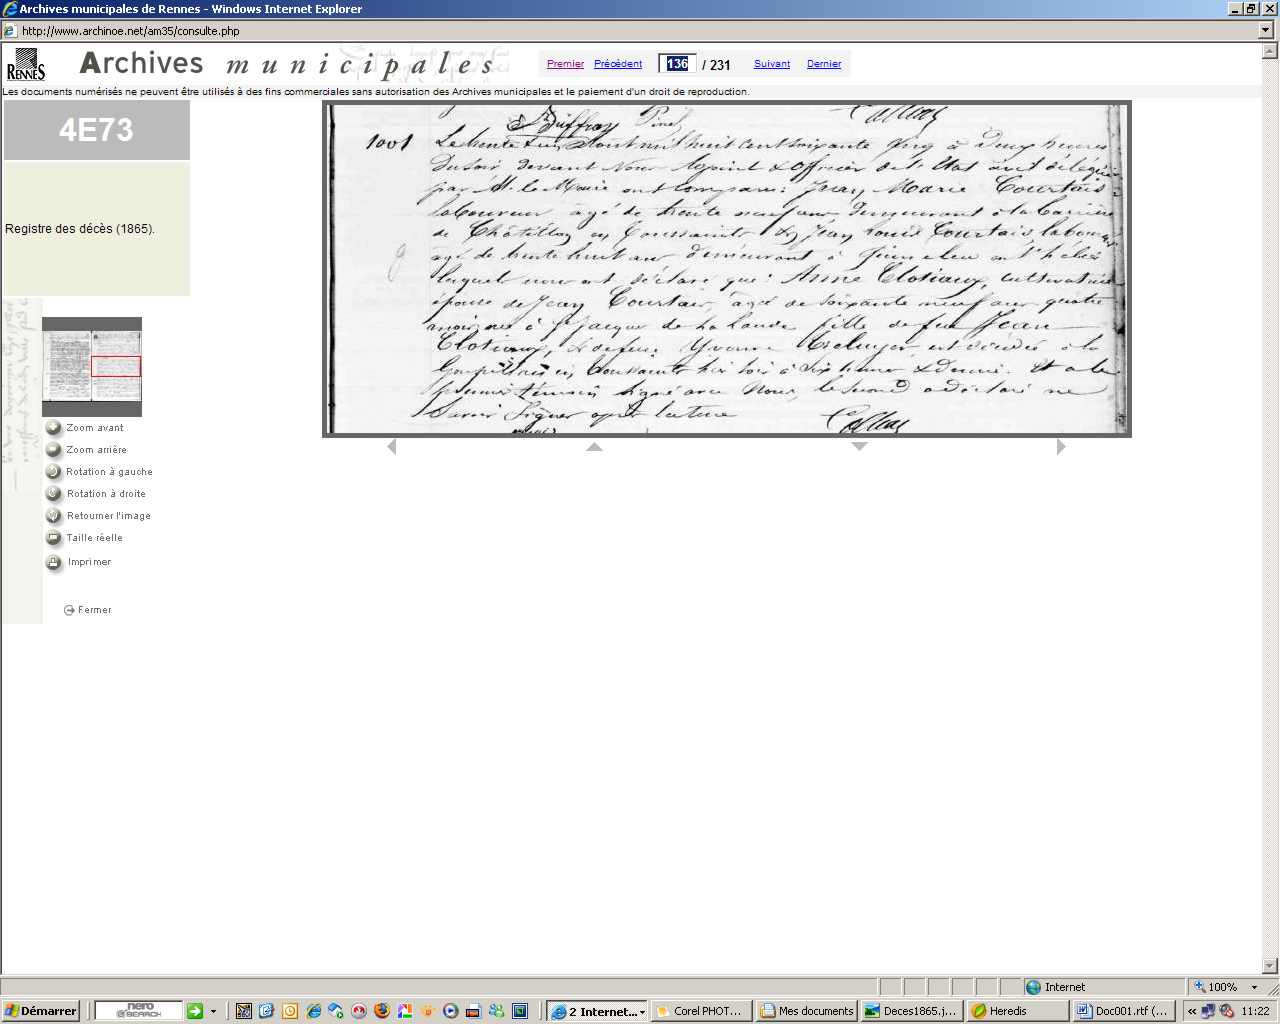 Archives municipales de Rennes - Windows Internet Explorer
http://www.archinoe.net/am35/consulte.php
RENNES
Archives municipales
Premier Précédent 136 / 231 Suivant Dernier
Les documents numérisés ne peuvent être utilisés à des fins commerciales sans autorisation des Archives municipales et le paiement d'un droit de reproduction.
4E73
Registre des décès (1865).
Duffray Pinel
1001 Le trente un Aout mil huit cent soixante cinq à Deux heures
Du soir devant Nous Adjoint & Officier de l'Etat civil délégué
par M. le Maire ont comparu: Jean Marie Courtais
laboureur âgé de trente neuf ans Demeurant à la Carrière
de Châtillon en Toussaints & Jean Louis Courtais laboureur
âgé de trente huit ans demeurant à
lesquels nous ont déclaré que: Anne Clotiaux, cultivatrice
épouse de Jean Courtais, âgée de soixante neuf ans quatre
mois, née à St Jacques de la Lande fille de feu Jean
Clotiaux, & de feue Yvonne est décédée à la
en Toussaints hier soir à six heures & Demie. Et a le
premier témoin signé avec Nous, le second a déclaré ne
Savoir Signer après lecture
Zoom avant
Zoom arrière
Rotation à gauche
Rotation à droite
Retourner l'image
Taille réelle
Imprimer
Fermer
Internet 100%
Démarrer nero SEARCH 2 Internet... Corel PHOT... Mes documents Deces1865.j... Heredis Doc001.rtf (... « 11:22